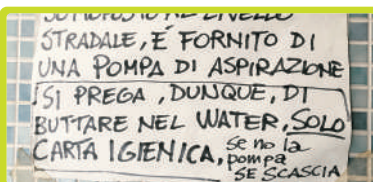 SOTTOPOSTO AL LIVELLO
STRADALE, È FORNITO DI
UNA POMPA DI ASPIRAZIONE
SI PREGA, DUNQUE, DI
BUTTARE NEL WATER, SOLO
CARTA IGIENICA, se no la
pompa
SE SCASCIA